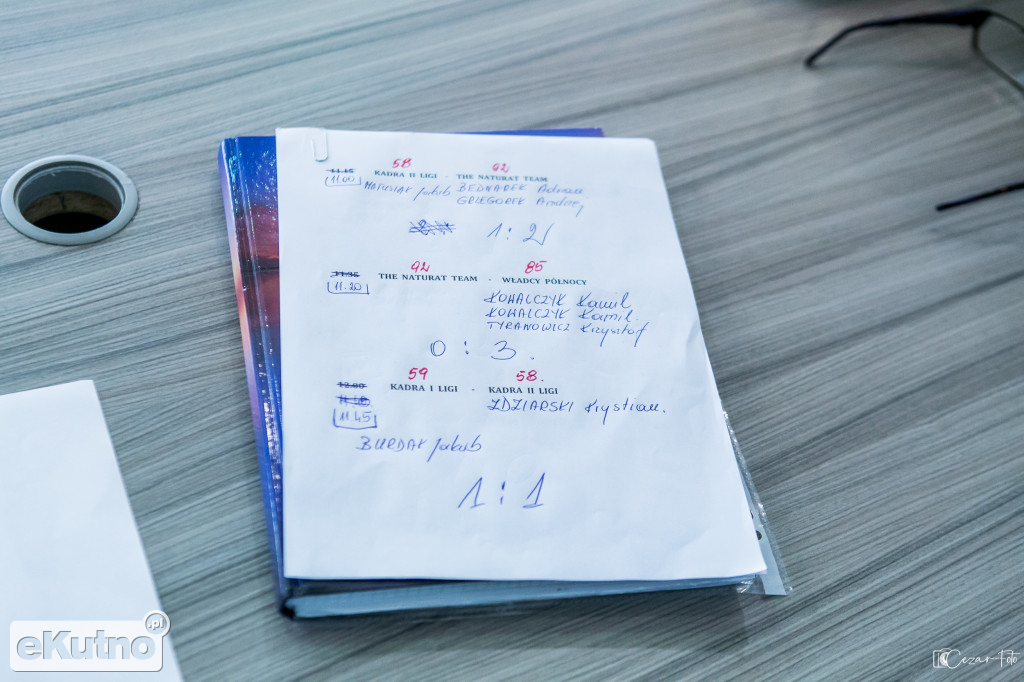 58 92
11.15 KADRA II LIGI - THE NATURAT TEAM
11.00 MARUSIAK Jakub BEDNAREK Adrian
GRZEGOREK Andrzej
1:2
92 85
11.35 THE NATURAT TEAM - WŁADCY PÓŁNOCY
11.20
KOWALCZYK Kamil
KOWALCZYK Kamil.
TYRANOWICZ Krzysztof
0:3.
59 58.
12.00 KADRA I LIGI - KADRA II LIGI
11.45 ZDZIARSKI Krystian.
BURDAK Jakub
1:1
eKutno.pl
Cezar-Foto